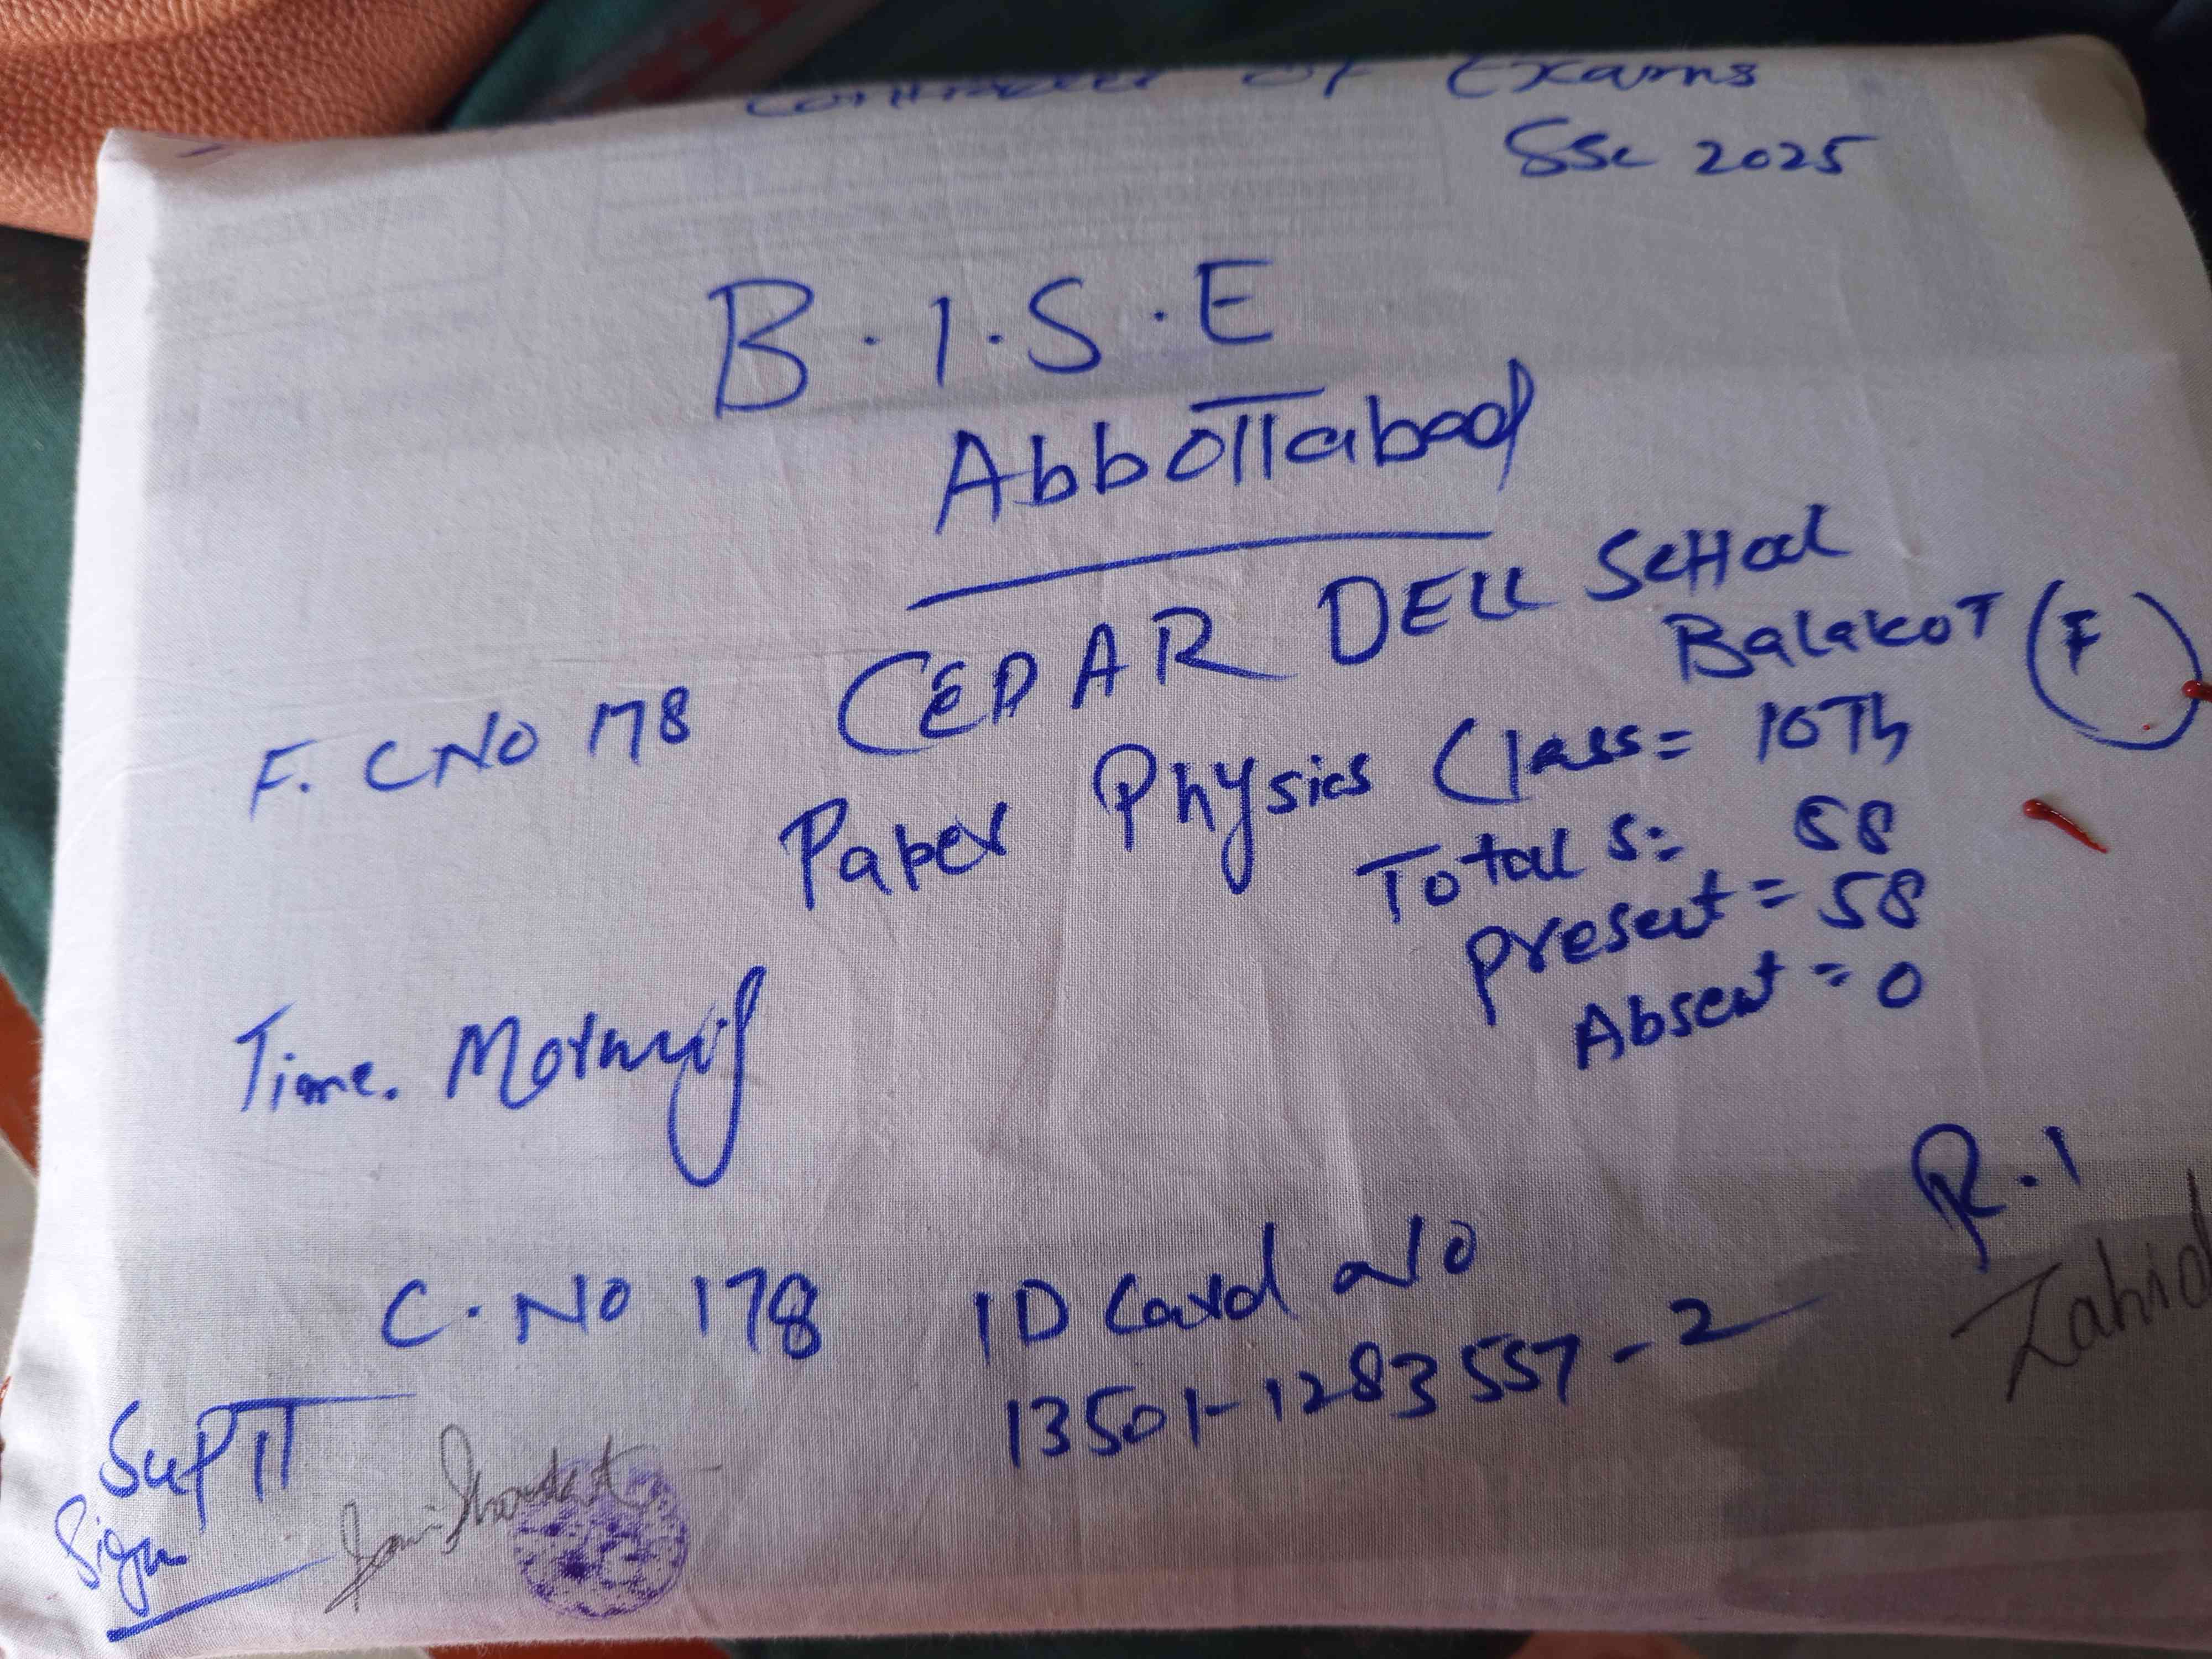 Controller of Exams
SSc 2025
B.I.S.E
Abbottabad
CEDAR DELL SCHool
Balakot (F)
F. C No 178
Paper Physics Class = 10Th
Total S = 58
Present = 58
Absent = 0
Time. Morning
R.1
Zahid
C.No 178
ID Card No
13501-1283557-2
SupTT
Sign